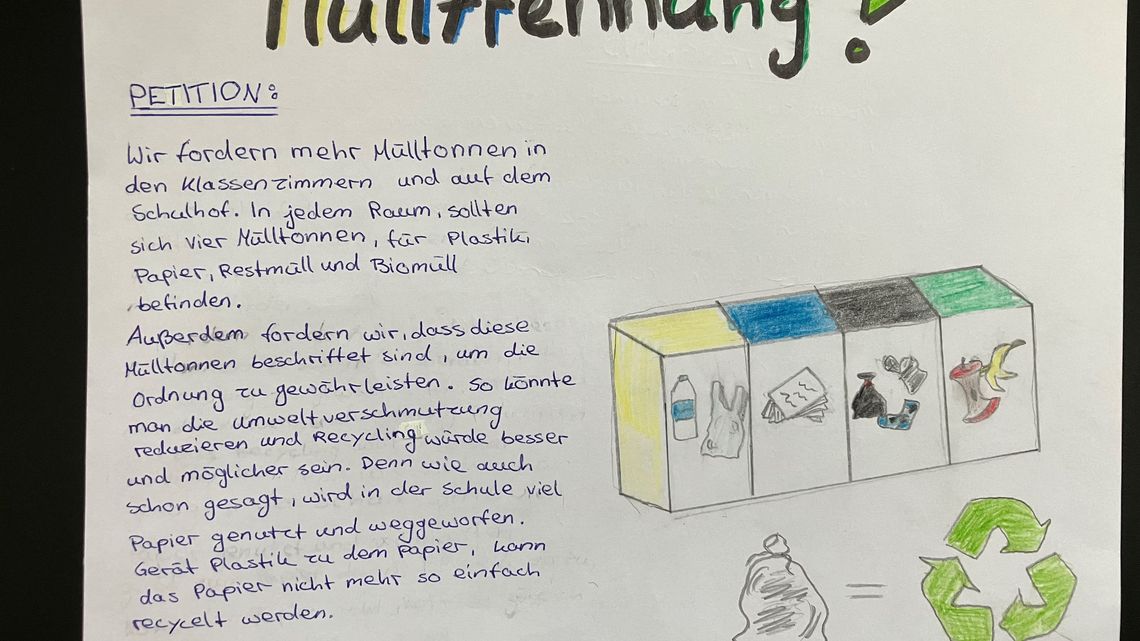 Mülltrennung!
PETITION:
Wir fordern mehr Mülltonnen in
den Klassenzimmern und auf dem
Schulhof. In jedem Raum, sollten
sich vier Mülltonnen, für Plastik,
Papier, Restmüll und Biomüll
befinden.
Außerdem fordern wir, dass diese
Mülltonnen beschriftet sind, um die
Ordnung zu gewährleisten. So könnte
man die Umweltverschmutzung
reduzieren und Recycling würde besser
und möglicher sein. Denn wie auch
schon gesagt, wird in der Schule viel
Papier genutzt und weggeworfen.
Gerät Plastik zu dem Papier, kann
das Papier nicht mehr so einfach
recycelt werden.
=